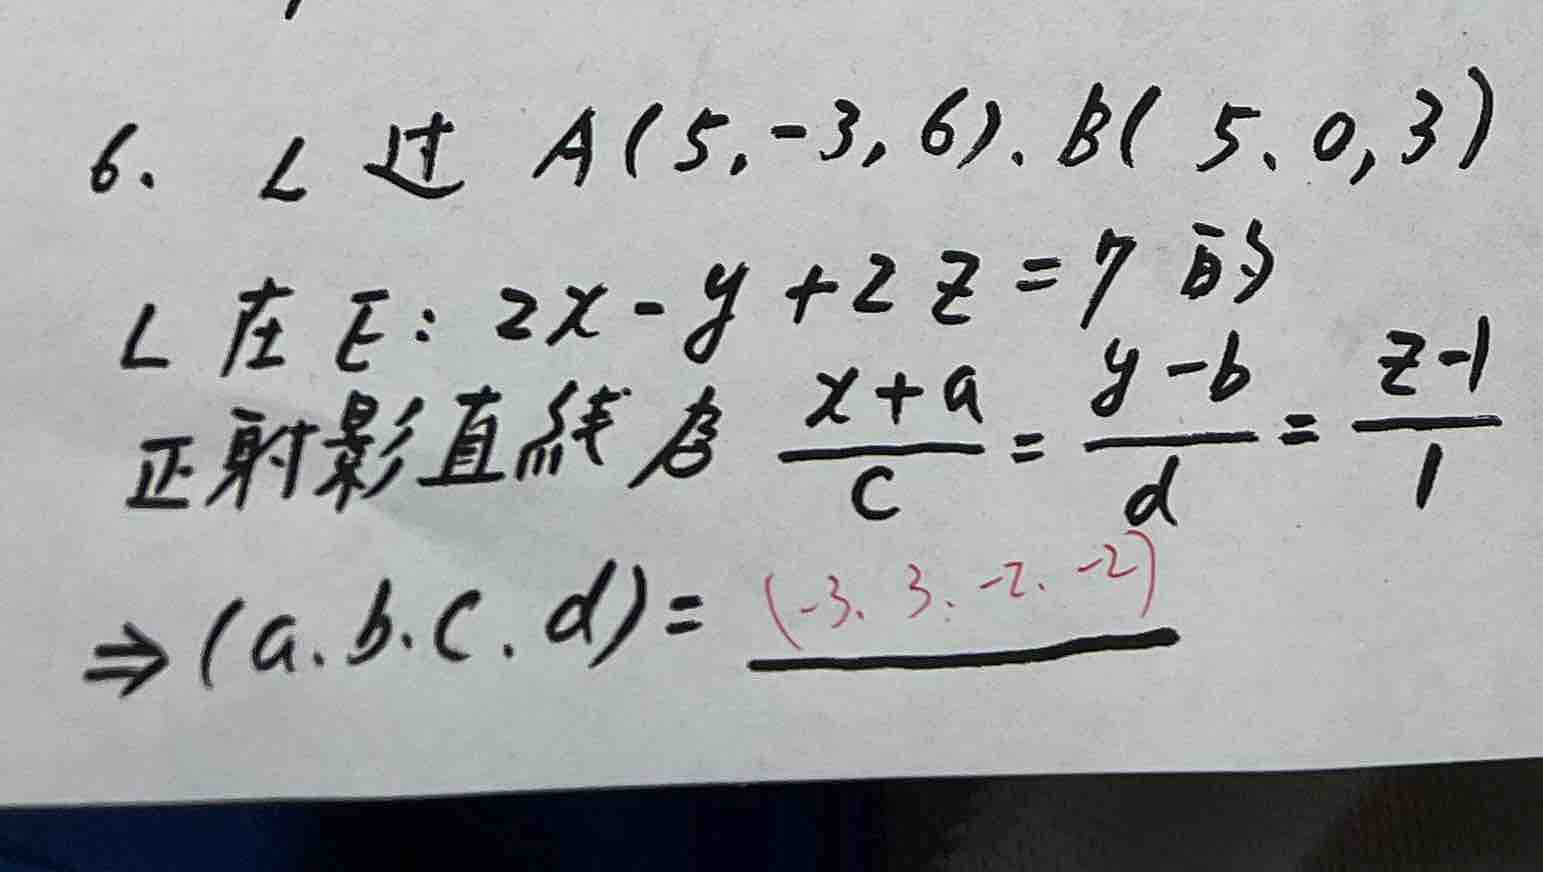 6. L 过 A(5,-3,6)、B(5、0,3)
L 在 E: 2x-y+2z=7 的
正射影直线为 (x+a)/c = (y-b)/d = (z-1)/1
⇒(a.b.c.d)= (-3、3、-2、-2)